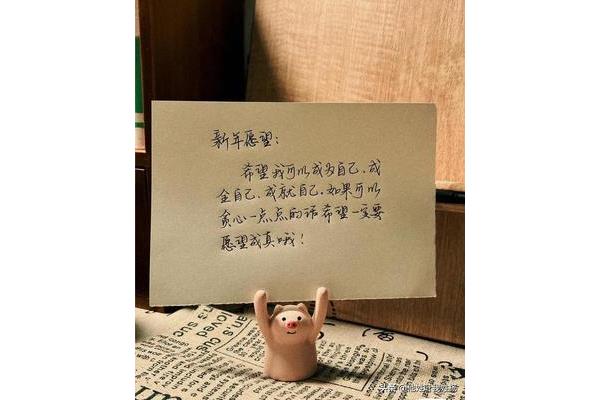 新年愿望：
希望我可以成为自己、成
全自己、成就自己、如果可以
贪心一点点的话希望一定要
愿望成真哦！